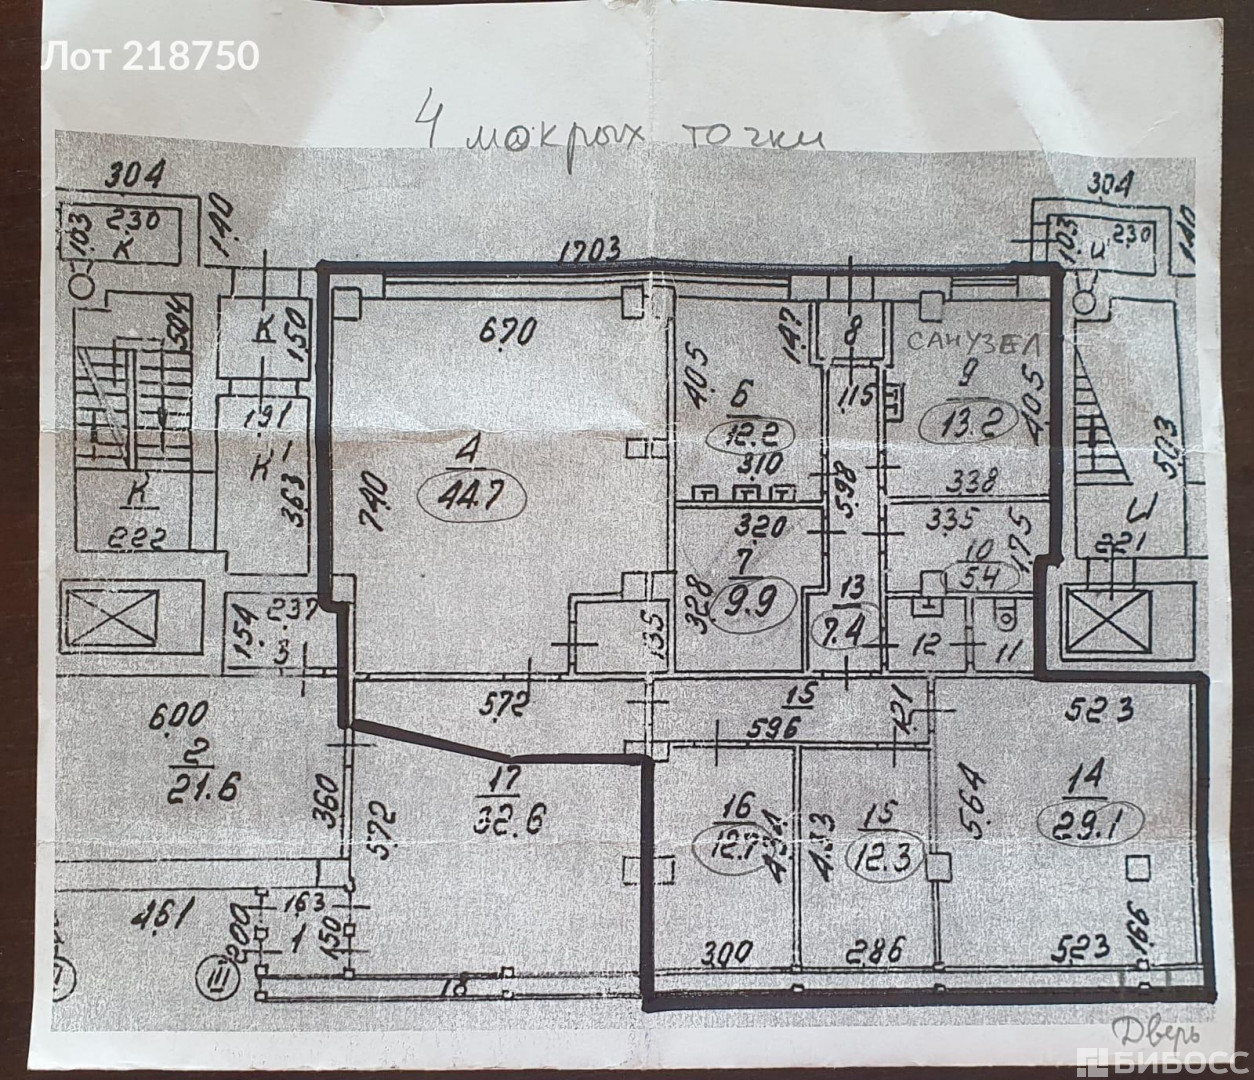 Лот 218750
4 мокрых точки
304
304
103
2.30
К
140
103
2.30
140
1703
504
К
150
670
147
8
САНУЗЕЛ
405
6
12.2
310
115
9
13.2
405
503
191
К
363
4
44.7
740
598
338
К
222
320
7
9.9
328
335
10
5.4
175
221
237
154
3
135
13
7.4
12
11
600
2
21.6
360
572
15
596
121
523
17
32.6
572
16
12.7
434
433
15
12.3
564
14
29.1
461
200
163
1
150
III
300
286
523
166
18
Дверь
БИБОСС